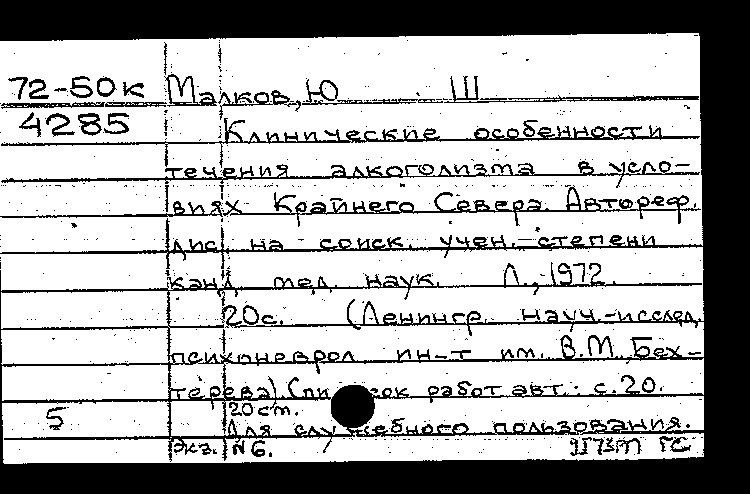 72-50к Малков, Ю Ш
4285 Клинические особенности
течения алкоголизма в усло-
виях Крайнего Севера. Автореф.
дис. на соиск. учен. степени
канд. мед. наук. Л., 1972.
20с. (Ленингр. науч.-исслед.
психоневрол. ин-т им. В.М. Бех-
терева). (Список работ авт.: с.20.
5 20 ст.
Для служебного пользования.
Экз. N 6.